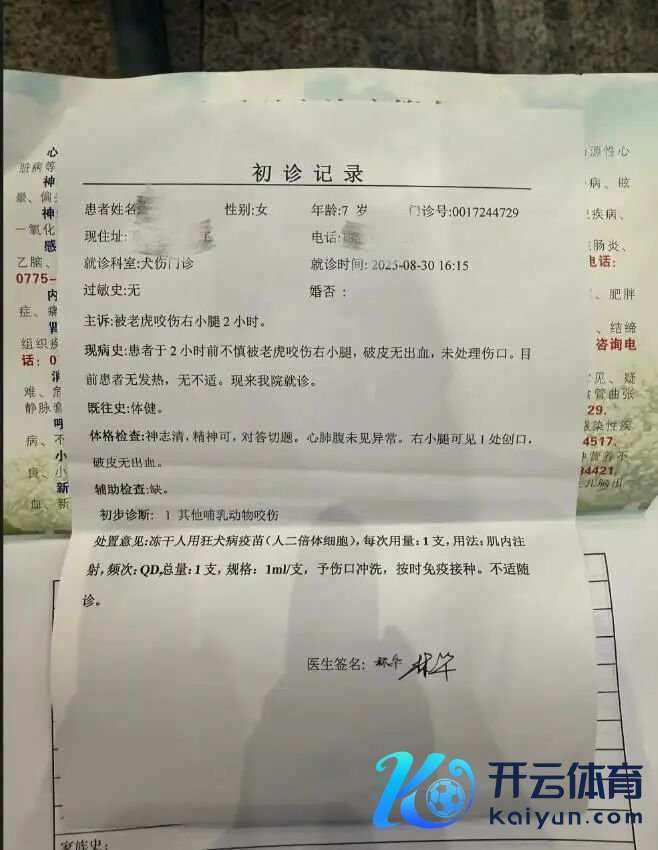 初诊记录
患者姓名: 性别:女 年龄:7 岁 门诊号:0017244729
现住址: 电话:
就诊科室:犬伤门诊 就诊时间: 2025-08-30 16:15
过敏史:无 婚否 :
主诉:被老虎咬伤右小腿 2 小时。
现病史:患者于 2 小时前不慎被老虎咬伤右小腿,破皮无出血,未处理伤口。目
前患者无发热,无不适。现来我院就诊。
既往史:体健。
体格检查:神志清,精神可,对答切题。心肺腹未见异常。右小腿可见 1 处创口,
破皮无出血。
辅助检查:缺。
初步诊断: 1 其他哺乳动物咬伤
处置意见:冻干人用狂犬病疫苗(人二倍体细胞),每次用量:1 支,用法:肌内注
射,频次:QD,总量:1 支,规格:1ml/支,予伤口冲洗,按时免疫接种。不适随
诊。
医生签名: 林华 林华
心
脏病等
神
晕、偏
神
一氧化
感
乙脑、
0775-
内
症、痛
肾
组织疾
话:0
消
难、
静脉
呼
病、不
小
良、小
新
血、新
源性心
病、眩
疾病、
肠炎、
电话:
、肥胖
、结缔
咨询电
见、疑
管曲张
29.
感染性疾
4517.
种营养不
84421.
儿脑出
家族史:
开云体育
kaiyun.com